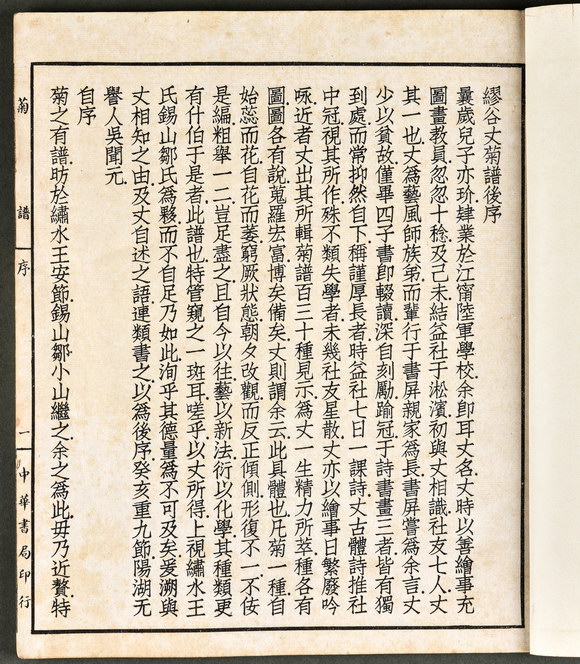 繆谷丈菊譜後序
曩歲兒子亦玠肄業於江甯陸軍學校余卽耳丈名丈時以善繪事充
圖畫教員忽忽十稔及己未結益社于淞濱初與丈相識社友七人丈
其一也丈爲藝風師族弟而輩行于書屏親家爲長書屏嘗爲余言丈
少以貧故僅畢四子書卽輟讀深自刻勵踰冠于詩書畫三者皆有獨
到處而常抑然自下稱謹厚長者時益社七日一課詩丈古體詩推社
中冠視其所作殊不類失學者未幾社友星散丈亦以繪事日繁廢吟
咏近者丈出其所輯菊譜百三十種見示爲丈一生精力所萃種各有
圖圖各有說蒐羅宏富博矣備矣丈則謂余云此具體也凡菊一種自
始蕊而花自花而萎窮厥狀態朝夕改觀而反正傾側形復不一不佞
是編粗舉一二豈足盡之且自今以往藝以新法衍以化學其種類更
有什伯于是者此譜也特管窺之一斑耳嗟乎以丈所得上視繡水王
氏錫山鄒氏爲夥而不自足乃如此洵乎其德量爲不可及矣爰溯與
丈相知之由及丈自述之語連類書之以爲後序癸亥重九節陽湖无
譽人吳聞元
自序
菊之有譜昉於繡水王安節錫山鄒小山繼之余之爲此毋乃近贅特
菊譜 序 二 中華書局印行